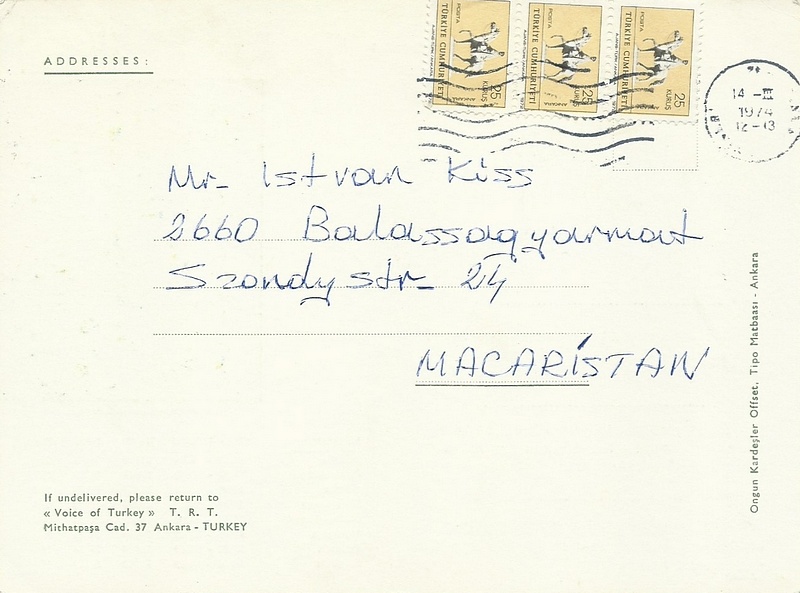 ADDRESSES:
POSTA
TÜRKİYE CUMHURİYETİ
25
KURUŞ
POSTA
TÜRKİYE CUMHURİYETİ
25
KURUŞ
POSTA
TÜRKİYE CUMHURİYETİ
25
KURUŞ
14 -II
1974
12-13
Mr- Istvan Kiss
2660 Balassagyarmat
Szondy str- 24
MACARİSTAN
If undelivered, please return to
« Voice of Turkey » T. R. T.
Mithatpaşa Cad. 37 Ankara - TURKEY
Ongun Kardeşler Offset, Tipo Matbaası - Ankara